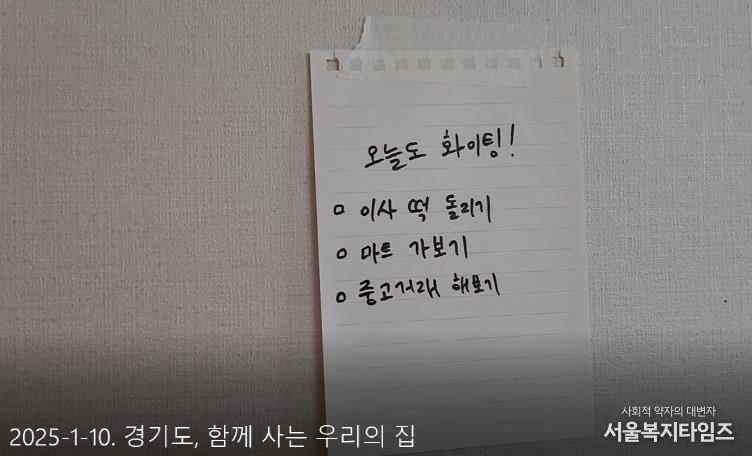 오늘도 화이팅!
이사 떡 돌리기
마트 가보기
중고거래 해보기
사회적 약자의 대변자
서울복지타임즈
2025-1-10. 경기도, 함께 사는 우리의 집